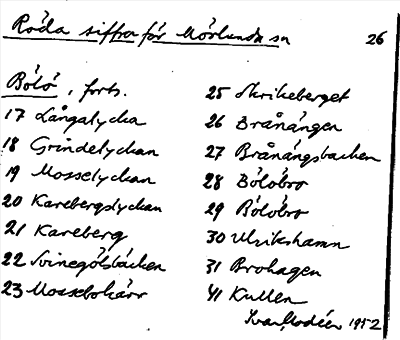 Röda siffror för Mörlunda sn 26
Bölö, forts.
17 Långalycka
18 Grindelyckan
19 Mosselyckan
20 Karebergslyckan
21 Kareberg
22 Svinegölsbäcken
23 Mossebokärr
25 Skrikeberget
26 Brånängen
27 Brånängsbacken
28 Bölöbro
29 Bölöbro
30 Ulrikshamn
31 Brohagen
41 Kullen
Ivar Modéer 1952